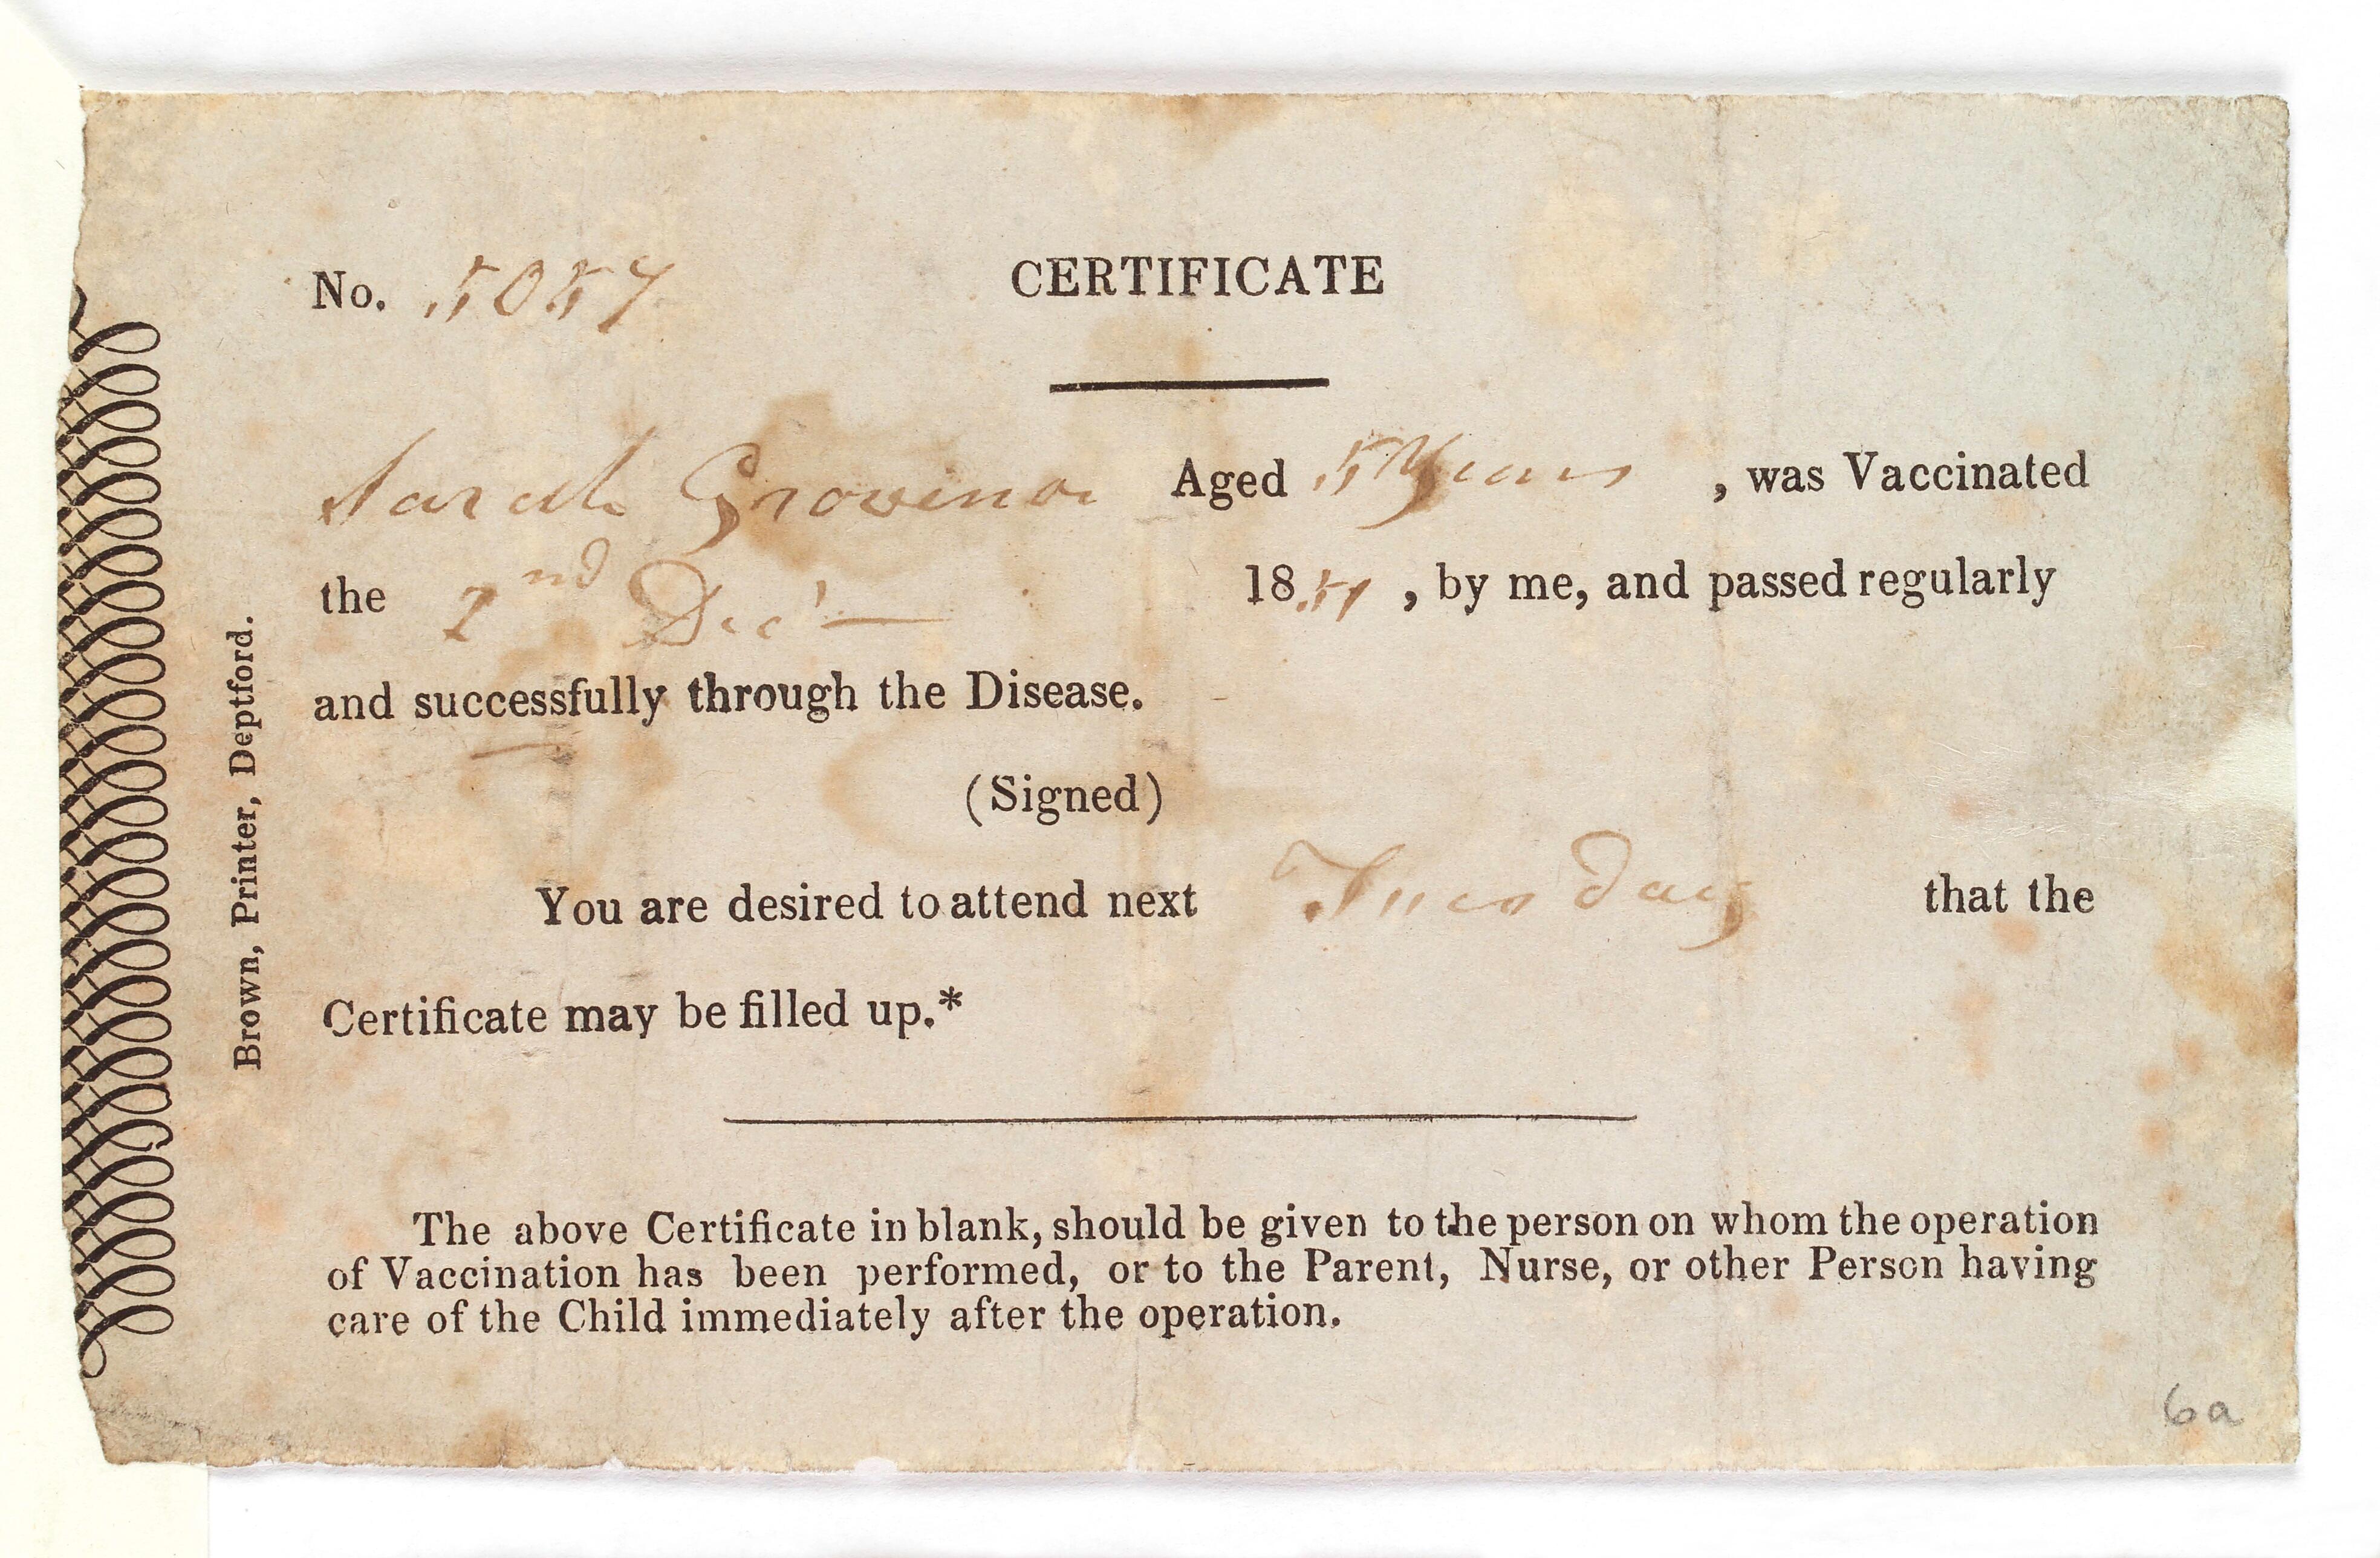 No. 5057
CERTIFICATE
Sarah Grovenor Aged 5 Years , was Vaccinated
the 2nd Decr 1851 , by me, and passed regularly
and successfully through the Disease.
(Signed)
You are desired to attend next Tuesday that the
Certificate may be filled up.*
The above Certificate in blank, should be given to the person on whom the operation
of Vaccination has been performed, or to the Parent, Nurse, or other Person having
care of the Child immediately after the operation.
Brown, Printer, Deptford.
6a